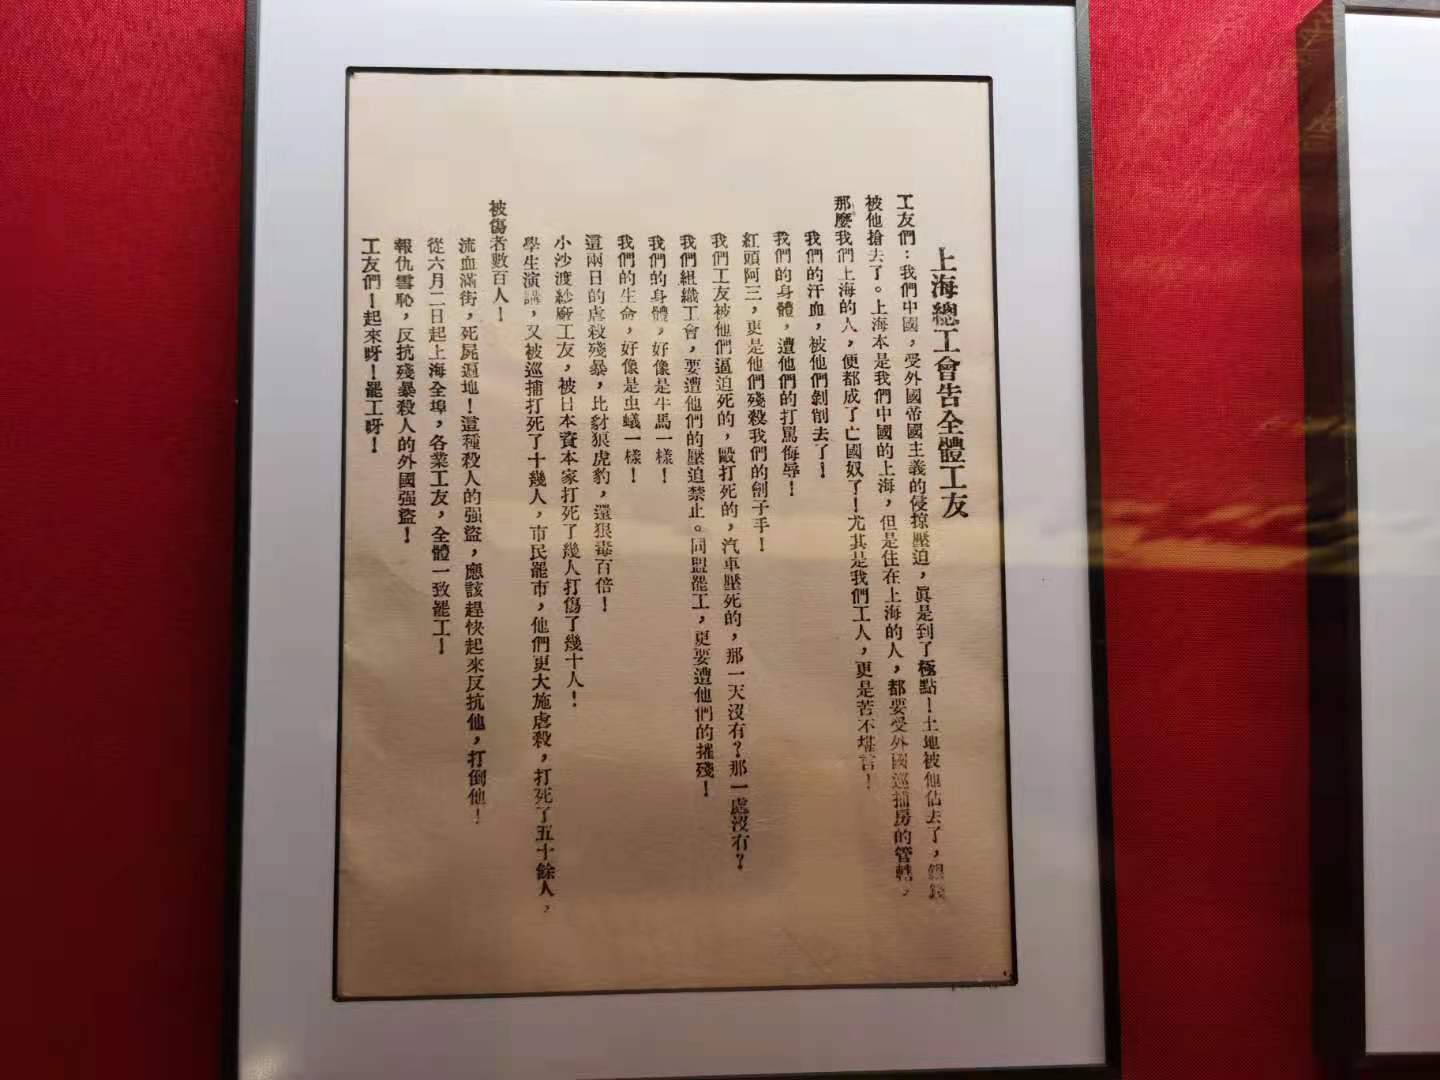 上海總工會告全體工友
工友們：我們中國，受外國帝國主義的侵掠壓迫，眞是到了極點！土地被他佔去了，銀錢
被他搶去了。上海本是我們中國的上海，但是住在上海的人，都要受外國巡捕房的管轄，
那麼我們上海的人，便都成了亡國奴了！尤其是我們工人，更是苦不堪言！
我們的汗血，被他們剝削去了！
我們的身體，遭他們的打罵侮辱！
紅頭阿三，更是他們殘殺我們的劊子手！
我們工友被他們逼迫死的，毆打死的，汽車壓死的，那一天沒有？那一處沒有？
我們組織工會，要遭他們的壓迫禁止。同盟罷工，更要遭他們的摧殘！
我們的身體，好像是牛馬一樣！
我們的生命，好像是虫蟻一樣！
這兩日的虐殺殘暴，比豺狼虎豹，還狠毒百倍！
小沙渡紗廠工友，被日本資本家打死了幾人打傷了幾十人！
學生演講，又被巡捕打死了十幾人，市民罷市，他們更大施虐殺，打死了五十餘人，
被傷者數百人！
流血滿街，死屍遍地！這種殺人的强盜，應該趕快起來反抗他，打倒他！
從六月二日起上海全埠，各業工友，全體一致罷工！
報仇雪恥，反抗殘暴殺人的外國强盜！
工友們！起來呀！罷工呀！